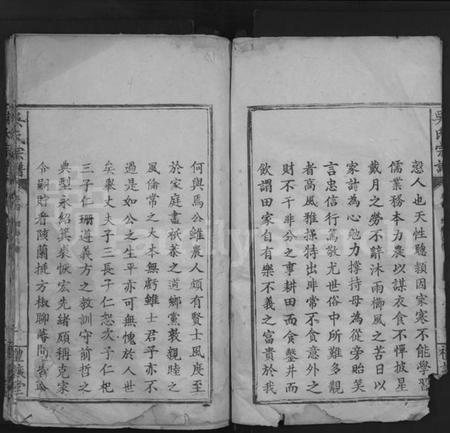 吳氏宗譜
愨人也天性聰穎因家寒不能學習
儒業務本力農以謀衣食不憚披星
戴月之勞不辭沐雨櫛風之苦日以
家計為心勉力撐持母為從旁貽笑
言忠信行篤敬尤世俗中所難多覯
者高風雅操特出非常不食意外之
財不干非分之事耕田而食鑿井而
飲謂田家自有樂不義之富貴於我
何與焉公雖農人頗有賢士風度至
於家庭盡祇恭之道鄉黨敦親睦之
風倫常之大本無虧雖士君子亦不
過是如公之生平亦可無愧於人世
矣舉丈夫子三長子仁恕次子仁杞
三子仁珊遵義方之教訓守前哲之
典型永紹箕裘恢宏先緒頗稱克家
令嗣財者陔蘭挺方椒聊蕃
吳氏宗譜